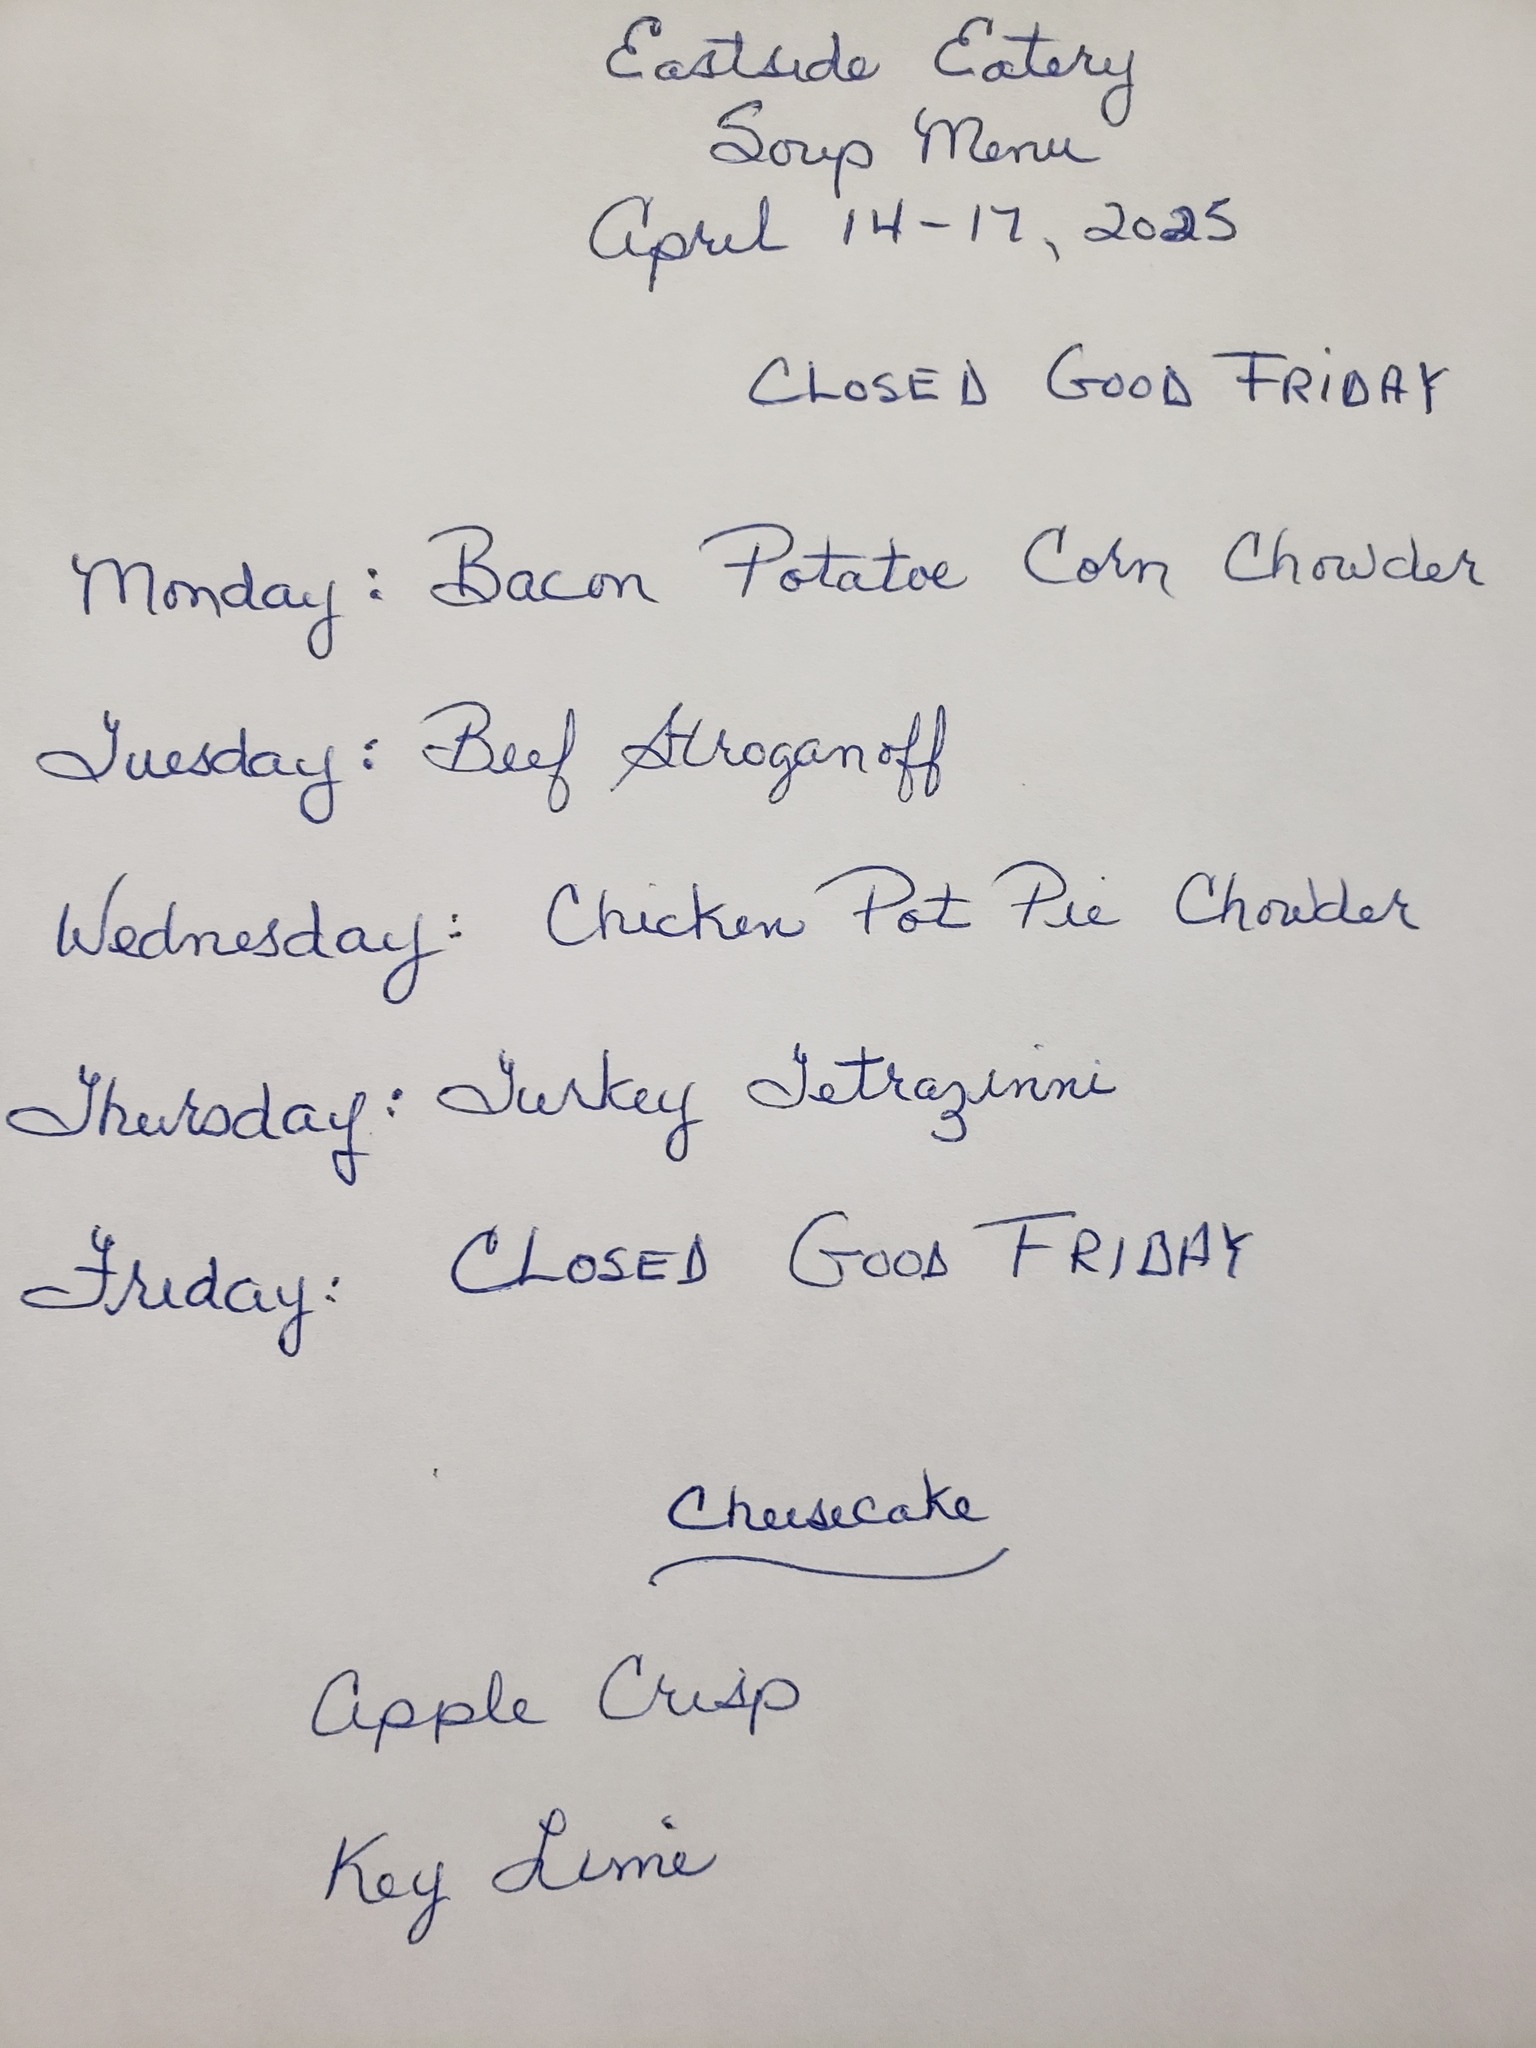 Eastside Eatery
Soup Menu
April 14-17, 2025
CLOSED GOOD FRIDAY
Monday: Bacon Potatoe Corn Chowder
Tuesday: Beef Stroganoff
Wednesday: Chicken Pot Pie Chowder
Thursday: Turkey Tetrazinni
Friday: CLOSED GOOD FRIDAY
Cheesecake
Apple Crisp
Key Lime